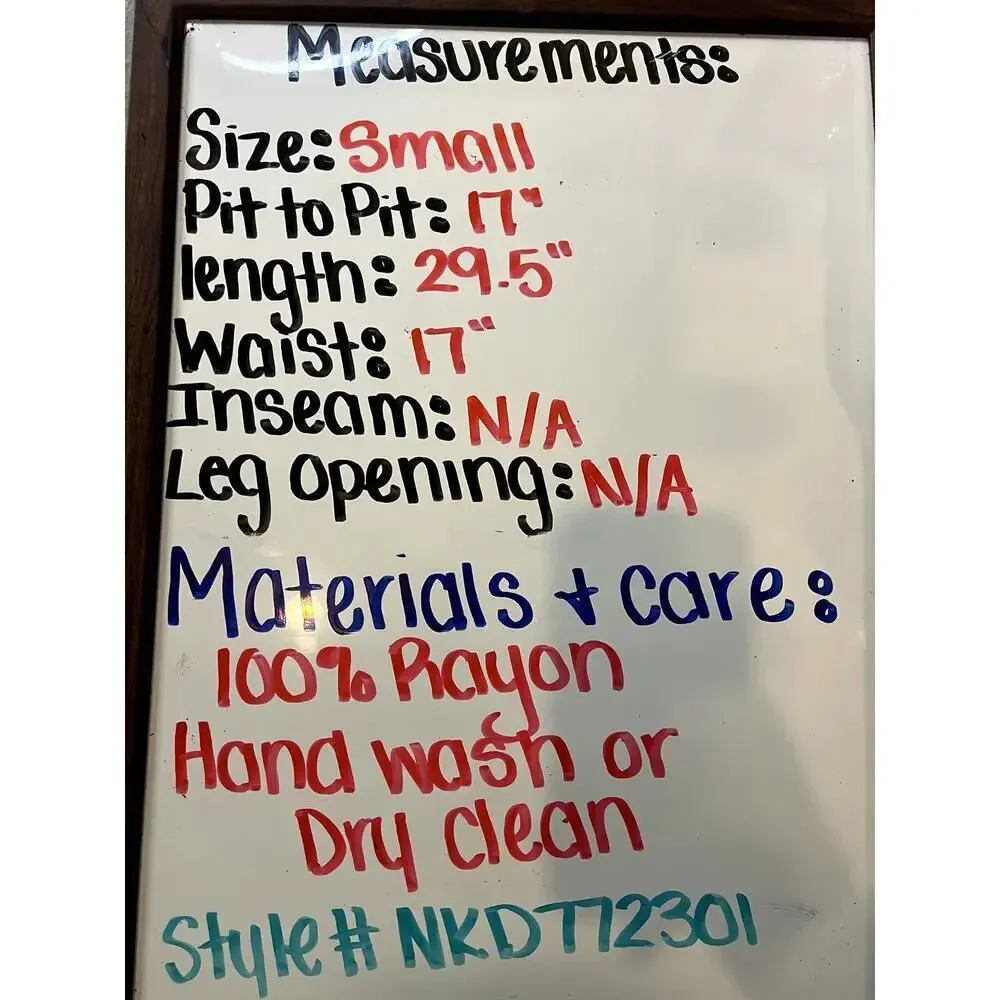 Measurements:
Size: Small
Pit to Pit: 17"
length: 29.5"
Waist: 17"
Inseam: N/A
Leg opening: N/A
Materials + care:
100% Rayon
Hand wash or
Dry clean
Style# NKDT72301